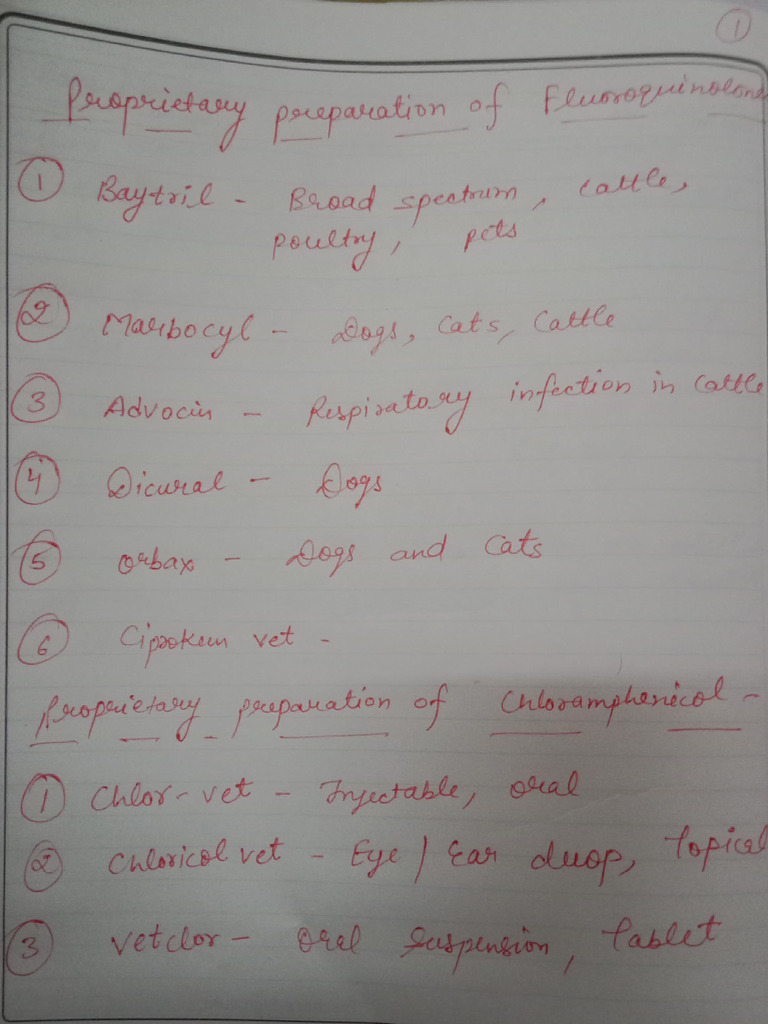 1
Proprietary preparation of Fluoroquinolone
1 Baytril - Broad spectrum, Cattle,
poultry, pets
2 Marbocyl - Dogs, Cats, Cattle
3 Advocin - Respiratory infection in Cattle
4 Dicural - Dogs
5 Orbax - Dogs and Cats
6 Ciprokem vet -
Proprietary preparation of Chloramphenicol -
1 Chlor-vet - Injectable, oral
2 Chloricol vet - Eye / Ear drop, Topical
3 Vetclor - Oral Suspension, Tablet